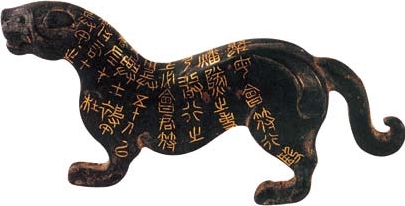 兵甲之符右才君左
才杜凡興士被甲
用兵五十人以
上必會君符
乃敢行之
燔燧之事
雖母會符行殹